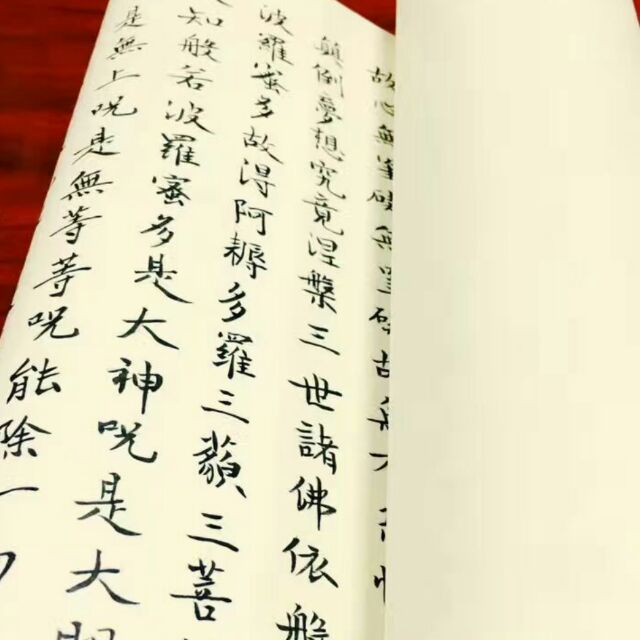 故心無罣礙無罣礙故無
顛倒夢想究竟涅槃三世諸佛依般
波羅蜜多故得阿耨多羅三藐三菩
知般若波羅蜜多是大神呪是大明
是無上呪是無等等呪能除一